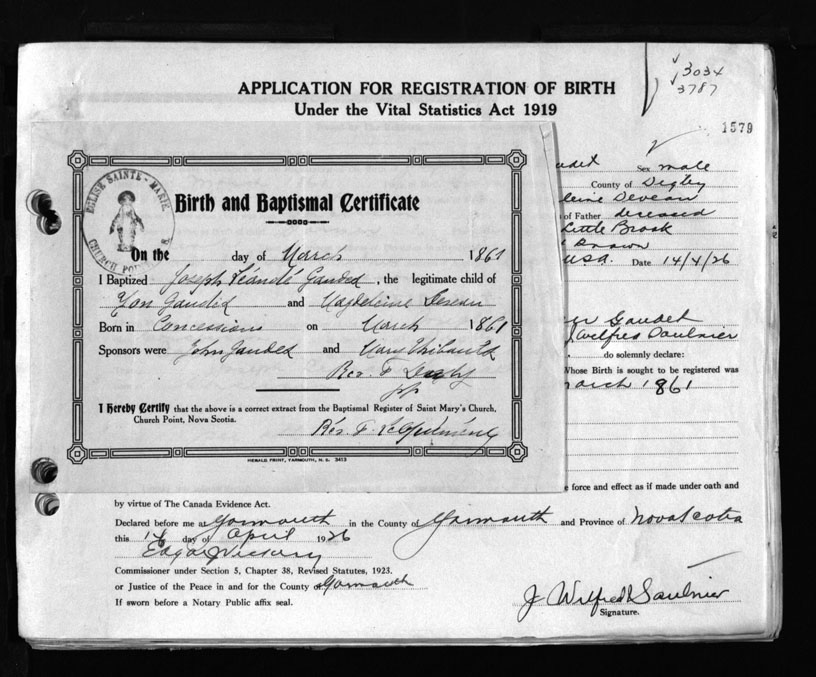 3034
3787
APPLICATION FOR REGISTRATION OF BIRTH
Under the Vital Statistics Act 1919
1579
Sex male
County of Digby
Deveau
of Father deceased
Little Brook
U.S.A. Date 14/4/26
Gaudet
J Wilfred Saulnier
do solemnly declare:
Whose Birth is sought to be registered was
March 1861
EGLISE SAINTE-MARIE
CHURCH POINT
Birth and Baptismal Certificate
On the day of March 1861
I Baptized Joseph Gauded, the legitimate child of
and Magdeleine
Born in Concessions on March 1861
Sponsors were John Gauded and Mary Thibault
Rev. F.
I Hereby Certify that the above is a correct extract from the Baptismal Register of Saint Mary's Church,
Church Point, Nova Scotia.
Rev. F.
HERALD PRINT, YARMOUTH, N. S. 3413
e force and effect as if made under oath and
by virtue of The Canada Evidence Act.
Declared before me at Yarmouth in the County of Yarmouth and Province of Nova Scotia
this 14 day of April 1926
Edgar
Commissioner under Section 5, Chapter 38, Revised Statutes, 1923.
or Justice of the Peace in and for the County of Yarmouth
If sworn before a Notary Public affix seal.
J Wilfred Saulnier
Signature.